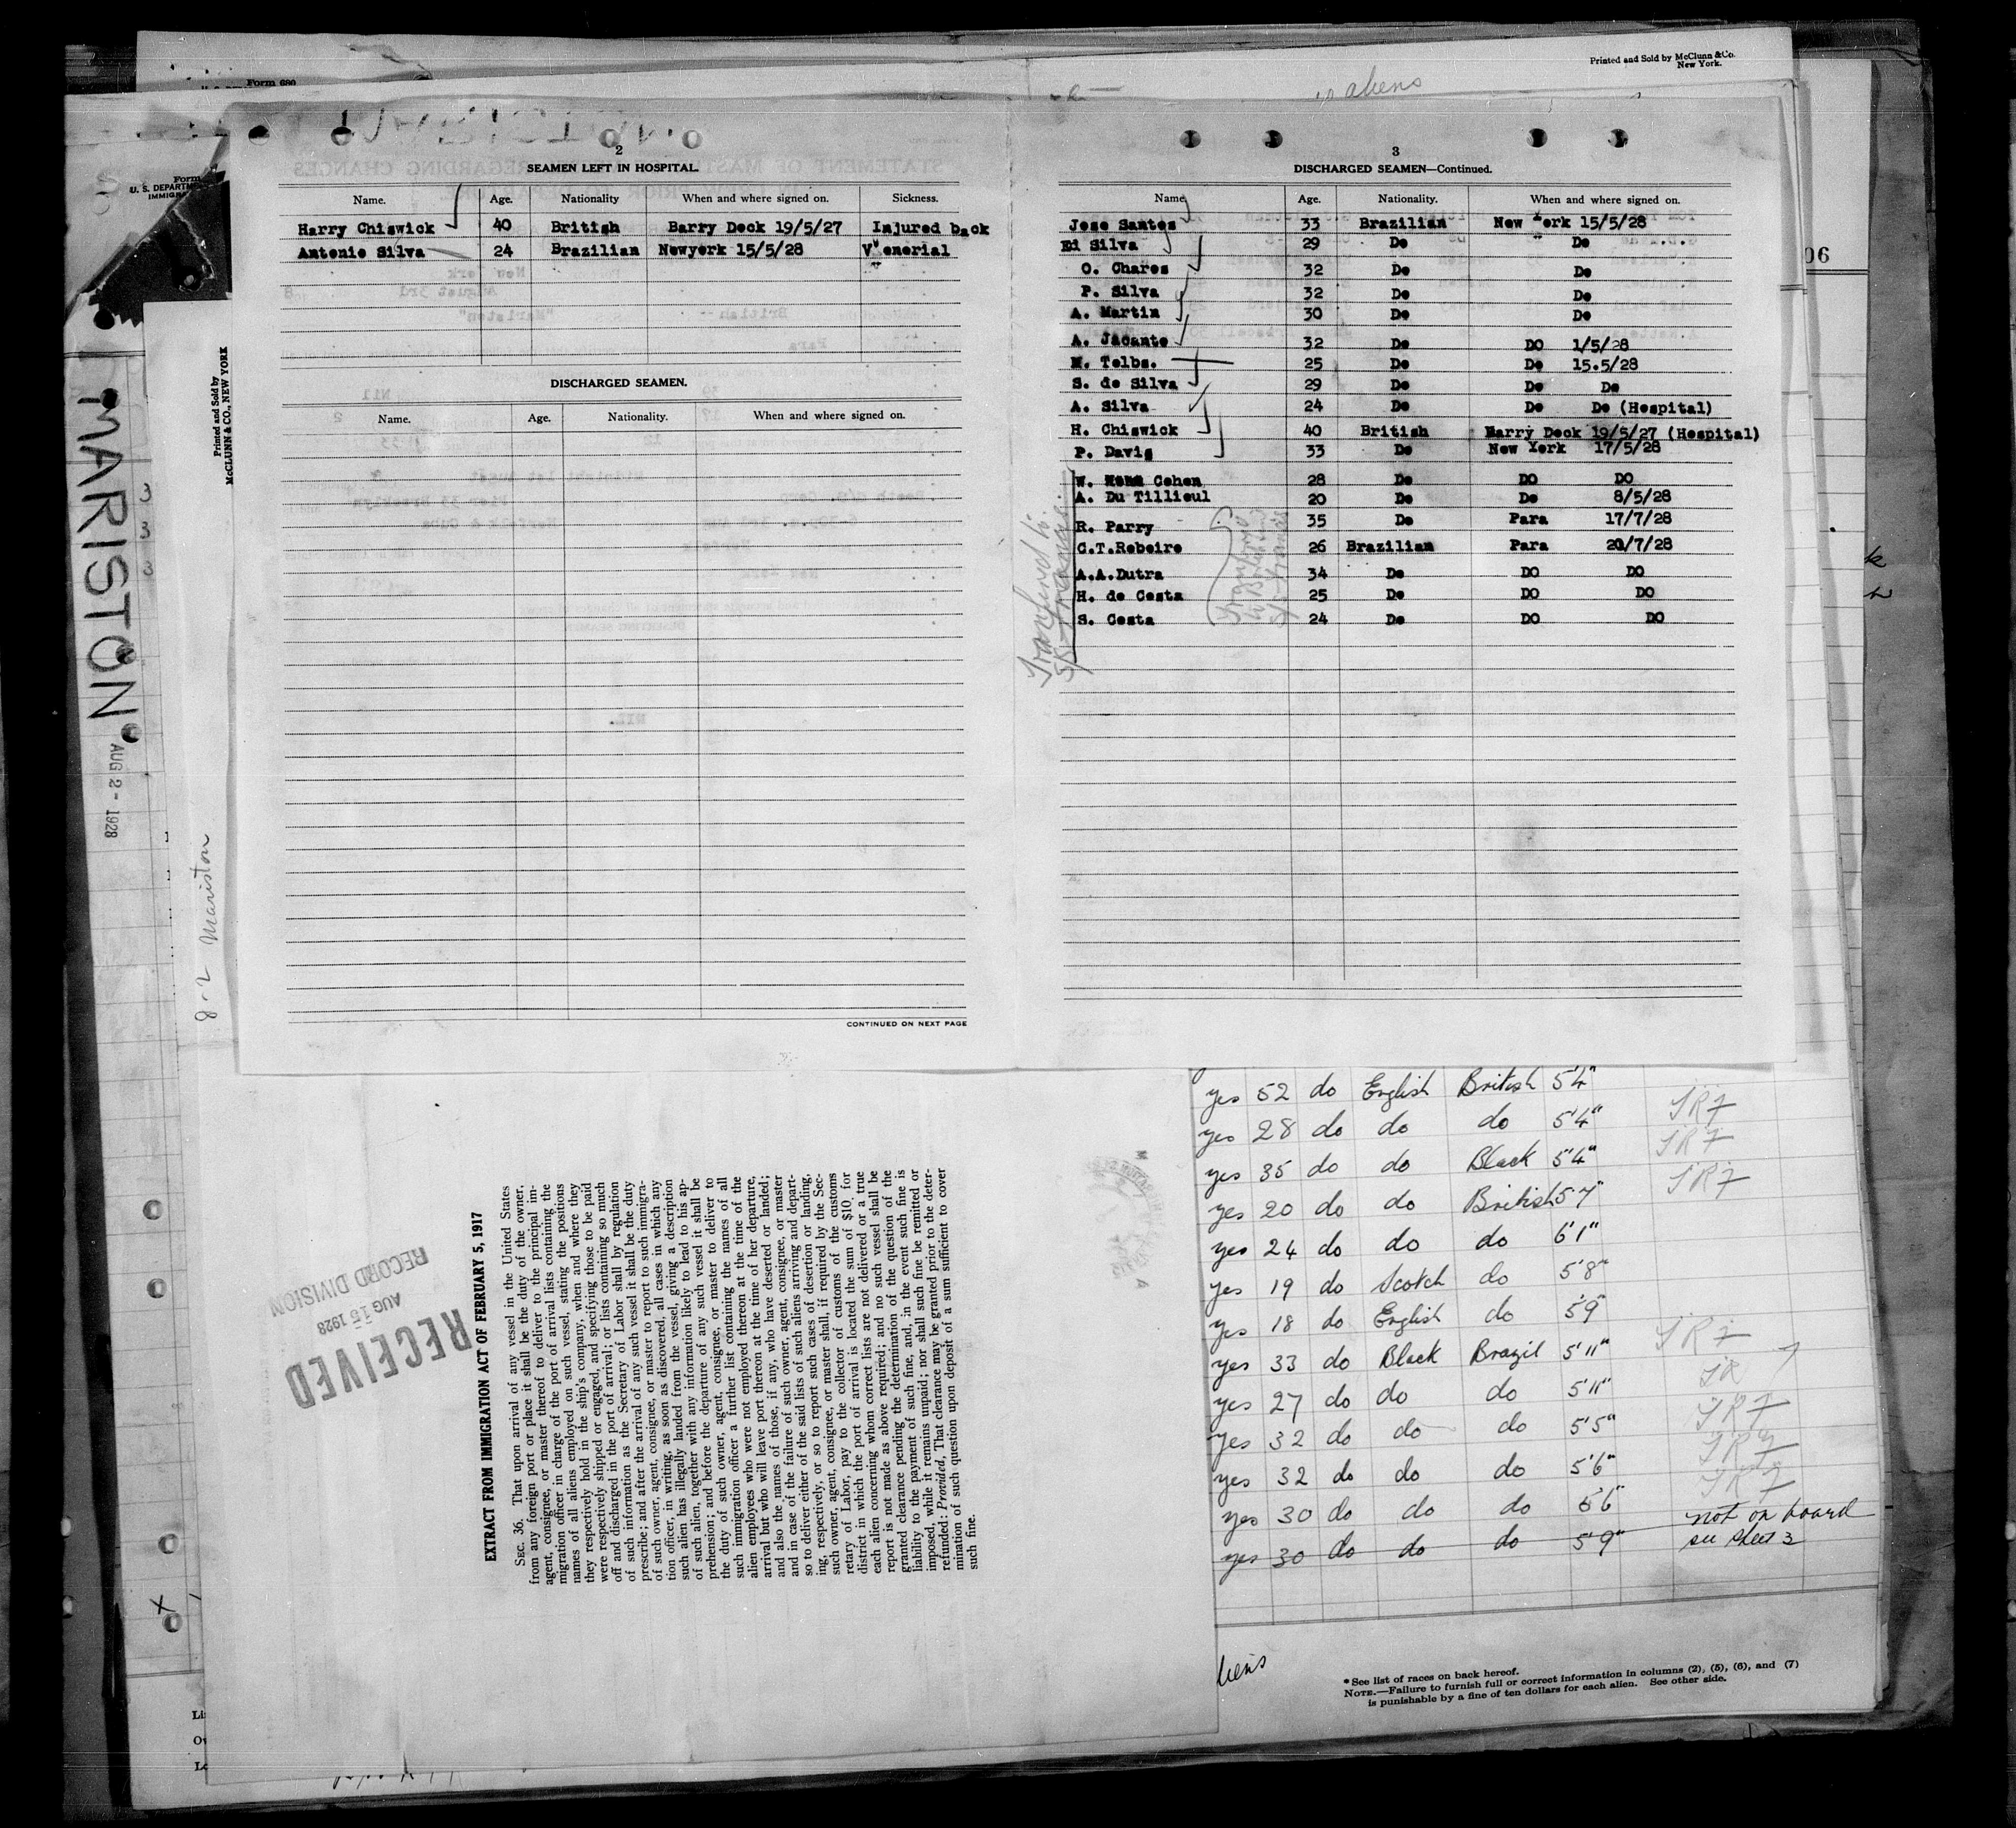 Printed and Sold by McClunn & Co.
New York.
Form 680
aliens
Form
U. S. DEPARTM
IMMIGR
Printed and Sold by
McCLUNN & CO., NEW YORK
MARISTON
AUG 2 - 1928
3
3
3
8-2 Mariston
06
2
SEAMEN LEFT IN HOSPITAL.
Name. Age. Nationality When and where signed on. Sickness.
Harry Chiswick 40 British Barry Dock 19/5/27 Injured back
Antonio Silva 24 Brazilian Newyork 15/5/28 Venerial
DISCHARGED SEAMEN.
Name. Age. Nationality. When and where signed on.
CONTINUED ON NEXT PAGE
3
DISCHARGED SEAMEN—Continued.
Name Age. Nationality. When and where signed on.
Jose Santos 33 Brazilian New York 15/5/28
Ed Silva 29 Do Do
O. Chares 32 Do Do
P. Silva 32 Do Do
A. Martin 30 Do Do
A. Jacante 32 Do DO 1/5/28
M. Telbs. 25 Do Do 15.5/28
S. de Silva 29 Do Do Do
A. Silva 24 Do Do Do (Hospital)
H. Chiswick 40 British Barry Dock 19/5/27 (Hospital)
P. Davis 33 Do New York 17/5/28
W. Cohen 28 Do DO DO
A. Du Tillieul 20 Do Do 8/5/28
R. Parry 35 Do Para 17/7/28
C.T.Rebeiro 26 Brazilian Para 20/7/28
A.A.Dutra 34 Do DO DO
H. de Costa 25 Do DO DO
S. Costa 24 Do DO DO
yes 52 do English British 5'4"
yes 28 do do do 5'4"
yes 35 do do Black 5'4"
yes 20 do do British 5'7"
yes 24 do do do 6'1"
yes 19 do Scotch do 5'8"
yes 18 do English do 5'9
yes 33 do Black Brazil 5'11"
yes 27 do do do 5'11"
yes 32 do do do 5'5"
yes 32 do do do 5'6"
yes 30 do do do 5'6"
yes 30 do do do 5'9"
not on board
see sheet 3
*See list of races on back hereof.
NOTE.—Failure to furnish full or correct information in columns (2), (5), (6), and (7)
is punishable by a fine of ten dollars for each alien. See other side.
RECEIVED
AUG 15 1928
RECORD DIVISION
EXTRACT FROM IMMIGRATION ACT OF FEBRUARY 5, 1917
SEC. 36. That upon arrival of any vessel in the United States
from any foreign port or place it shall be the duty of the owner,
agent, consignee, or master thereof to deliver to the principal im-
migration officer in charge of the port of arrival lists containing the
names of all aliens employed on such vessel, stating the positions
they respectively hold in the ship's company, when and where they
were respectively shipped or engaged, and specifying those to be paid
off and discharged in the port of arrival; or lists containing so much
of such information as the Secretary of Labor shall by regulation
prescribe; and after the arrival of any such vessel it shall be the duty
of such owner, agent, consignee, or master to report to such immigra-
tion officer, in writing, as soon as discovered, all cases in which any
such alien has illegally landed from the vessel, giving a description
of such alien, together with any information likely to lead to his ap-
prehension; and before the departure of any such vessel it shall be
the duty of such owner, agent, consignee, or master to deliver to
such immigration officer a further list containing the names of all
alien employees who were not employed thereon at the time of the
arrival but who will leave port thereon at the time of her departure,
and also the names of those, if any, who have deserted or landed;
and in case of the failure of such owner, agent, consignee, or master
so to deliver either of the said lists of such aliens arriving and depart-
ing, respectively, or so to report such cases of desertion or landing,
such owner, agent, consignee, or master shall, if required by the Sec-
retary of Labor, pay to the collector of customs of the customs
district in which the port of arrival is located the sum of $10 for
each alien concerning whom correct lists are not delivered or a true
report is not made as above required; and no such vessel shall be
granted clearance pending the determination of the question of the
liability to the payment of such fine, and, in the event such fine is
imposed, while it remains unpaid; nor shall such fine be remitted or
refunded: Provided, That clearance may be granted prior to the deter-
mination of such question upon deposit of a sum sufficient to cover
such fine.